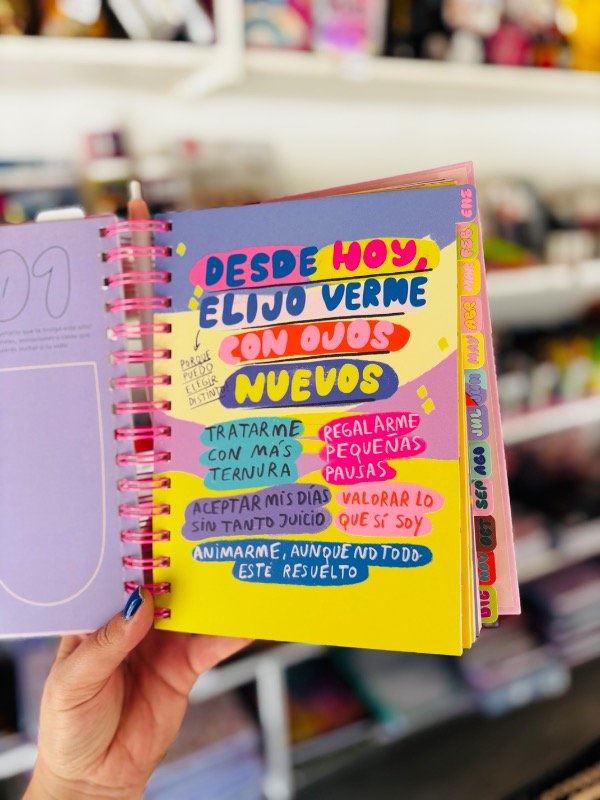 DESDE HOY,
ELIJO VERME
CON OJOS
NUEVOS
PORQUE
PUEDO
ELEGIR
DISTINTO
TRATARME
CON MÁS
TERNURA
REGALARME
PEQUEÑAS
PAUSAS
ACEPTAR MIS DÍAS
SIN TANTO JUICIO
VALORAR LO
QUE SÍ SOY
ANIMARME, AUNQUE NO TODO
ESTÉ RESUELTO
ENE
FEB
MAR
ABR
MAY
JUN
JUL
AGO
SEP
OCT
NOV
DIC